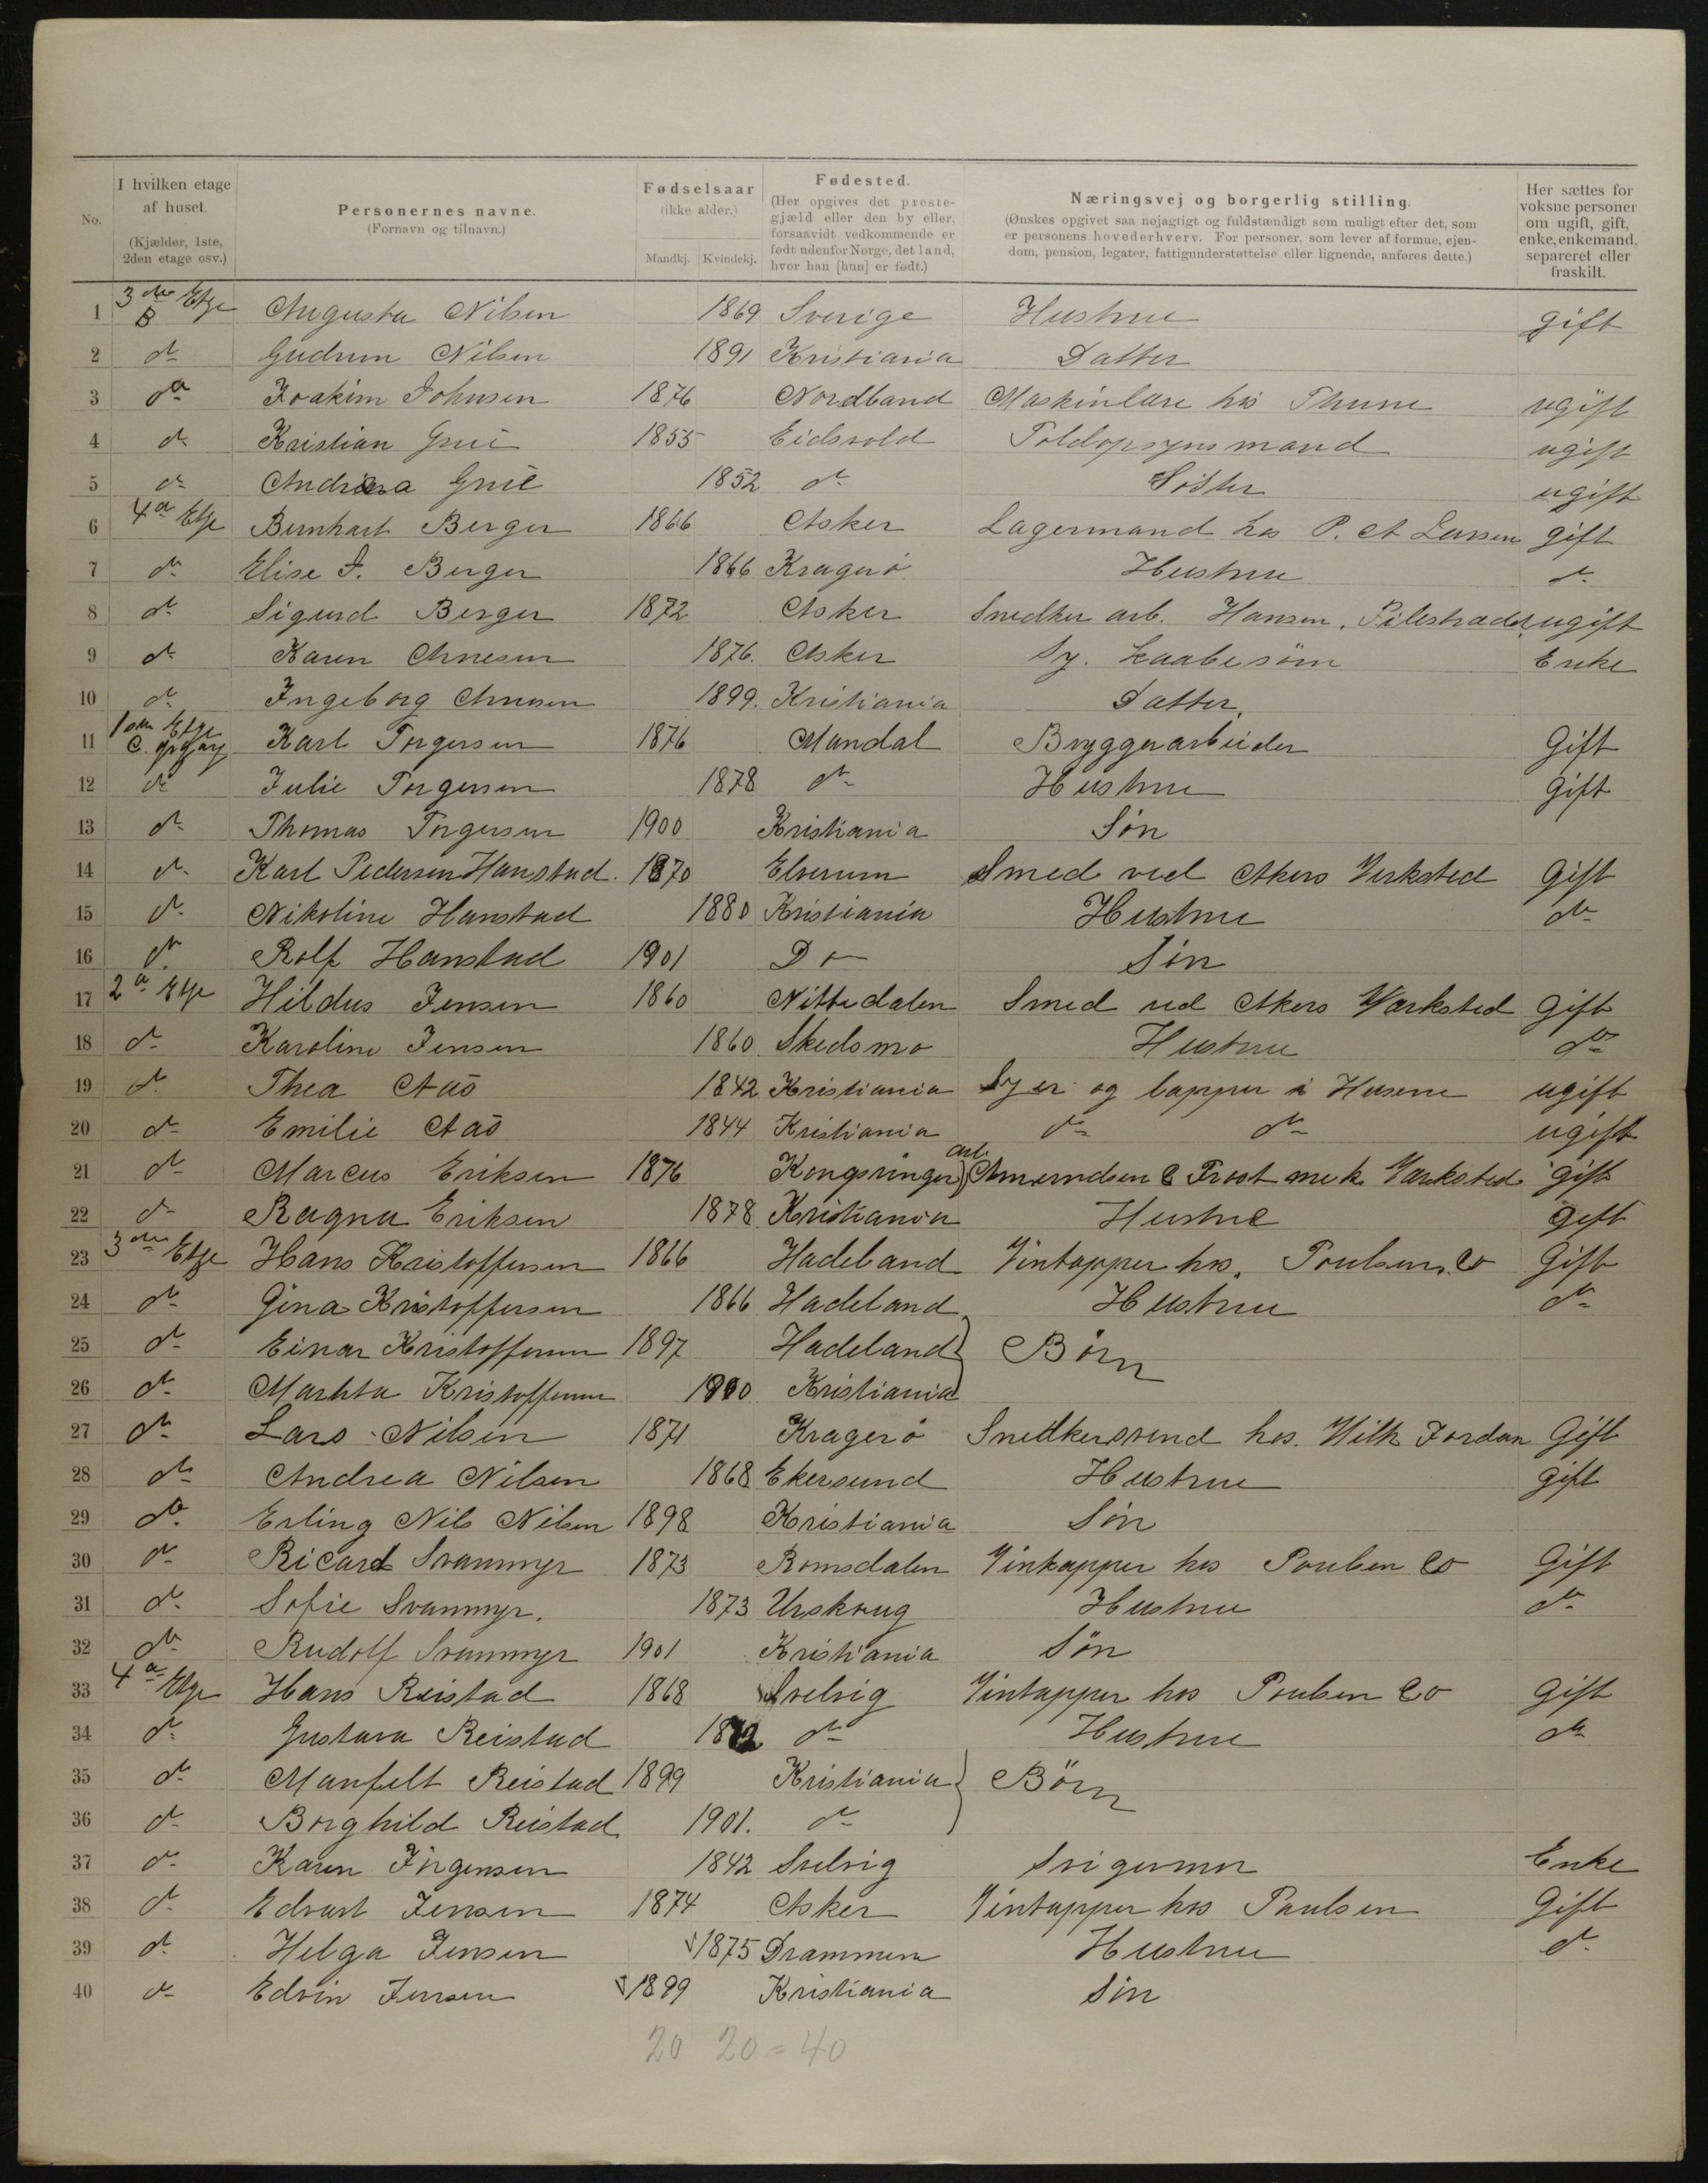 No.
I hvilken etage af huset. (Kjælder, 1ste, 2den etage osv.)
Personernes navne. (Fornavn og tilnavn.)
Fødselsaar (ikke alder.) Mandkj. Kvindekj.
Fødested. (Her opgives det prestegjæld eller den by eller, forsaavidt vedkommende er født udenfor Norge, det land, hvor han [hun] er født.)
Næringsvej og borgerlig stilling. (Ønskes opgivet saa nøjagtigt og fuldstændigt som muligt efter det, som er personens hovederhverv. For personer, som lever af formue, ejendom, pension, legater, fattigunderstøttelse eller lignende, anføres dette.)
Her sættes for voksne personer om ugift, gift, enke, enkemand, separeret eller fraskilt.
1 3die Etge B Augusta Nilsen 1869 Sverige Hustrue gift
2 do Gudrun Nilsen 1891 Kristiania Datter
3 do Joakim Johnsen 1876 Nordland Maskinlære hos Thune ugift
4 do Kristian Grue 1855 Eidsvold Toldopsynsmand ugift
5 do Andrea Grue 1852 do Søster ugift
6 4de Etge Bernhart Berger 1866 Asker Lagermand hos P. A Larsen gift
7 do Elise J. Berger 1866 Kragerø Hustrue do
8 do Sigurd Berger 1872 Asker Snedker arb. Hansen, Pilestrædet ugift
9 do Karen Arnesen 1876. Asker Sy. kaabesøm Enke
10 do Ingeborg Arnesen 1899. Kristiania Datter.
11 1ste Etge C. opgang Karl Torgersen 1876 Mandal Bryggerarbeider Gift
12 do Julie Torgersen 1878 do Hustrue Gift
13 do Thomas Torgersen 1900 Kristiania Søn
14 do Karl Pedersen Hanstad. 1870 Elverum Smed ved Akers Verksted Gift
15 do Nikoline Hanstad 1880 Kristiania Hustrue do
16 do Rolf Hanstad 1901 Do Søn
17 2den Etge Hildus Jensen 1860 Nittedalen Smed ved Akers Værksted Gift
18 do Karoline Jensen 1860 Skedsmo Hustrue do
19 do Thea Aas 1842 Kristiania Syer og lapper i Husene ugift
20 do Emilie Aas 1844 Kristiania do do ugift
21 do Marcus Eriksen 1876 Kongsvinger arb. Amundsen & Frost mek Værksted gift
22 do Ragna Eriksen 1878 Kristiania Hustrue gift
23 3die Etge Hans Kristoffersen 1866 Hadeland Vintapper hos. Poulsen, Co Gift
24 do Gina Kristoffersen 1866 Hadeland Hustrue do
25 do Einar Kristoffersen 1897 Hadeland } Børn
26 do Martha Kristoffersen 1900 Kristiania
27 do Lars Nilsen 1871 Kragerø Snedkersvend hos. Wilh Jordan Gift
28 do Andrea Nilsen 1868 Ekersund Hustrue gift
29 do Erling Nils Nilsen 1898 Kristiania Søn
30 do Ricard Svanmyr 1873 Romsdalen Vintapper hos Poulsen Co Gift
31 do Sofie Svanmyr. 1873 Urskoug Hustrue do
32 do Rudolf Svanmyr 1901 Kristiania Søn
33 4de Etge Hans Reistad 1868 Svelvig Vintapper hos Poulsen Co Gift
34 do Gustava Reistad 1872 do Hustrue do
35 do Manfelt Reistad 1899 Kristiania } Børn
36 do Borghild Reistad 1901. do
37 do Karen Jørgensen 1842 Svelvig Svigermor Enke
38 do Edvart Jensen 1874 Asker Vintapper hos Paulsen Gift
39 do Helga Jensen 1875 Drammen Hustrue do
40 do Edvin Jensen 1899 Kristiania Søn
20 20 = 40